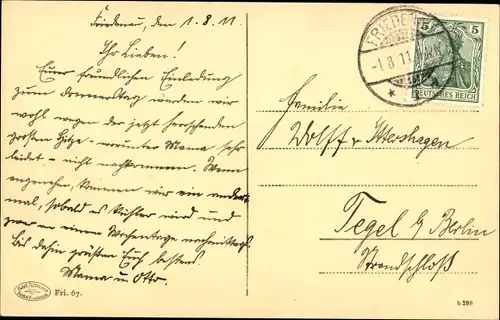 Friedenau, den 1.8.11
Ihr Lieben!
Eurer freundlichen Einladung
zum Donnerstag werden wir
wohl wegen der jetzt herrschenden
großen Hitze – worunter Mama sehr
leidet – nicht nachkommen. Wenn
angenehm, kommen wir ein ander-
mal, sobald es kühler wird und
zwar an einem Wochentage nachmittags.
Bis dahin grüßen Euch bestens
Mama u. Otto.
Fri. 67.
FRIEDENAU
-1.8.11
5 5
DEUTSCHES REICH
Familie
Wolff v. Ittershagen
Tegel b/ Berlin
Strandschloß
b 298